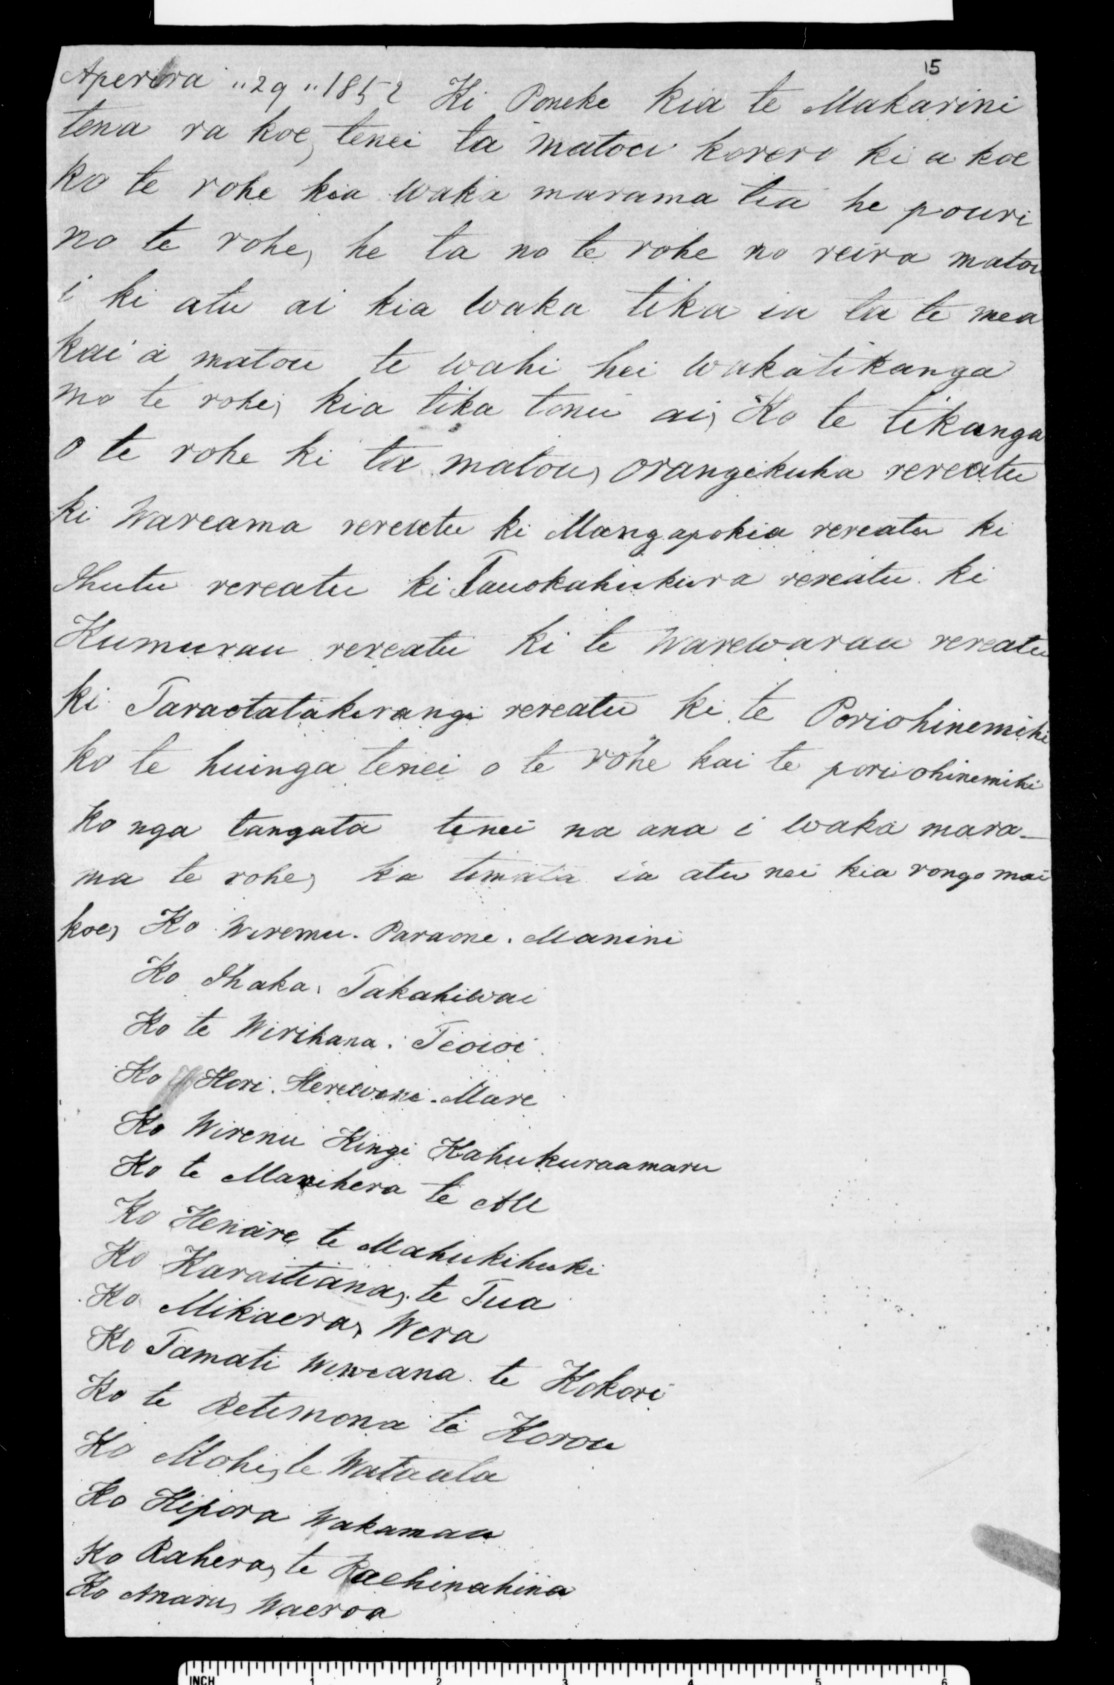 15
Aperira "29" 1852 Ki Poneke kia te Makarini
tena ra koe, tenei ta matou korero ki a koe
ko te rohe kia waka marama tia he pouri
no te rohe, he ta no te rohe no reira matou
i ki atu ai kia waka tika ia ta te mea
kai a matou te wahi hei wakatikanga
mo te rohe, kia tika tonu ai, Ko te tikanga
o te rohe ki ta matou, Orangikuha rereatu
ki Wareama rereatu ki Mangapokia rereatu ki
Ihutu rereatu ki Tauokahukura rereatu ki
Kumurau rereatu ki te Warewarau rereatu
ki Taraotatakirangi rereatu ki te Poriohinemihi
ko te huinga tenei o te rohe kai te poriohinemihi
ko nga tangata tenei na ana i waka mara-
ma te rohe, ka timata ia atu nei kia rongo mai
koe, Ko Wiremu. Paraone. Manini
Ko Ihaka, Takahiwai
Ko te Wirihana. Teoioi.
Ko Hori. Herewini. Mare
Ko Wirenu Kingi Kahukuraamaru
Ko te Manihera te
Ko Henare te Mahukihuki
Ko Karaitiana, te Tua
Ko Mikaera, Wera
Ko Tamati Wiweana te Kokori
Ko te Retimona te Korou
Ko Mohi, te Wataula
Ko Hipora Wakamau
Ko Rahera, te Rachinahina
Ko Anaru, Waeroa
INCH 1 2 3 4 5 6